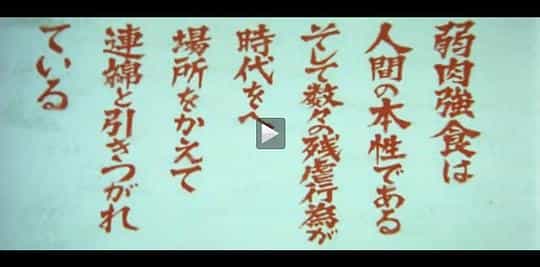 弱肉強食は
人間の本性である
そして数々の残虐行為が
時代をへ
場所をかえて
連綿と引きつがれ
ている